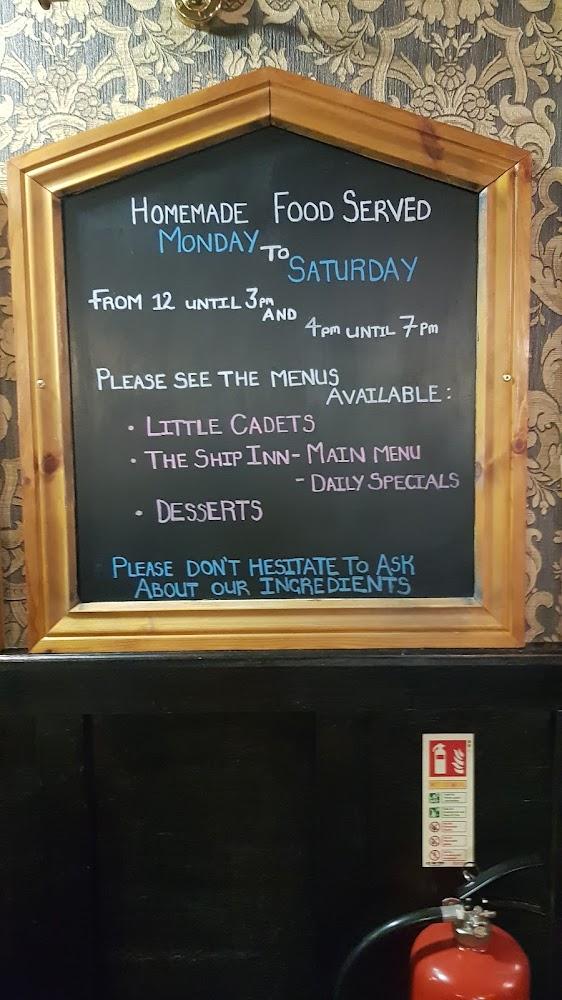 HOMEMADE FOOD SERVED
MONDAY TO SATURDAY
FROM 12 UNTIL 3pm
AND
4pm UNTIL 7pm
PLEASE SEE THE MENUS
AVAILABLE:
• LITTLE CADETS
• THE SHIP INN - MAIN MENU
- DAILY SPECIALS
• DESSERTS
PLEASE DON'T HESITATE TO ASK
ABOUT OUR INGREDIENTS